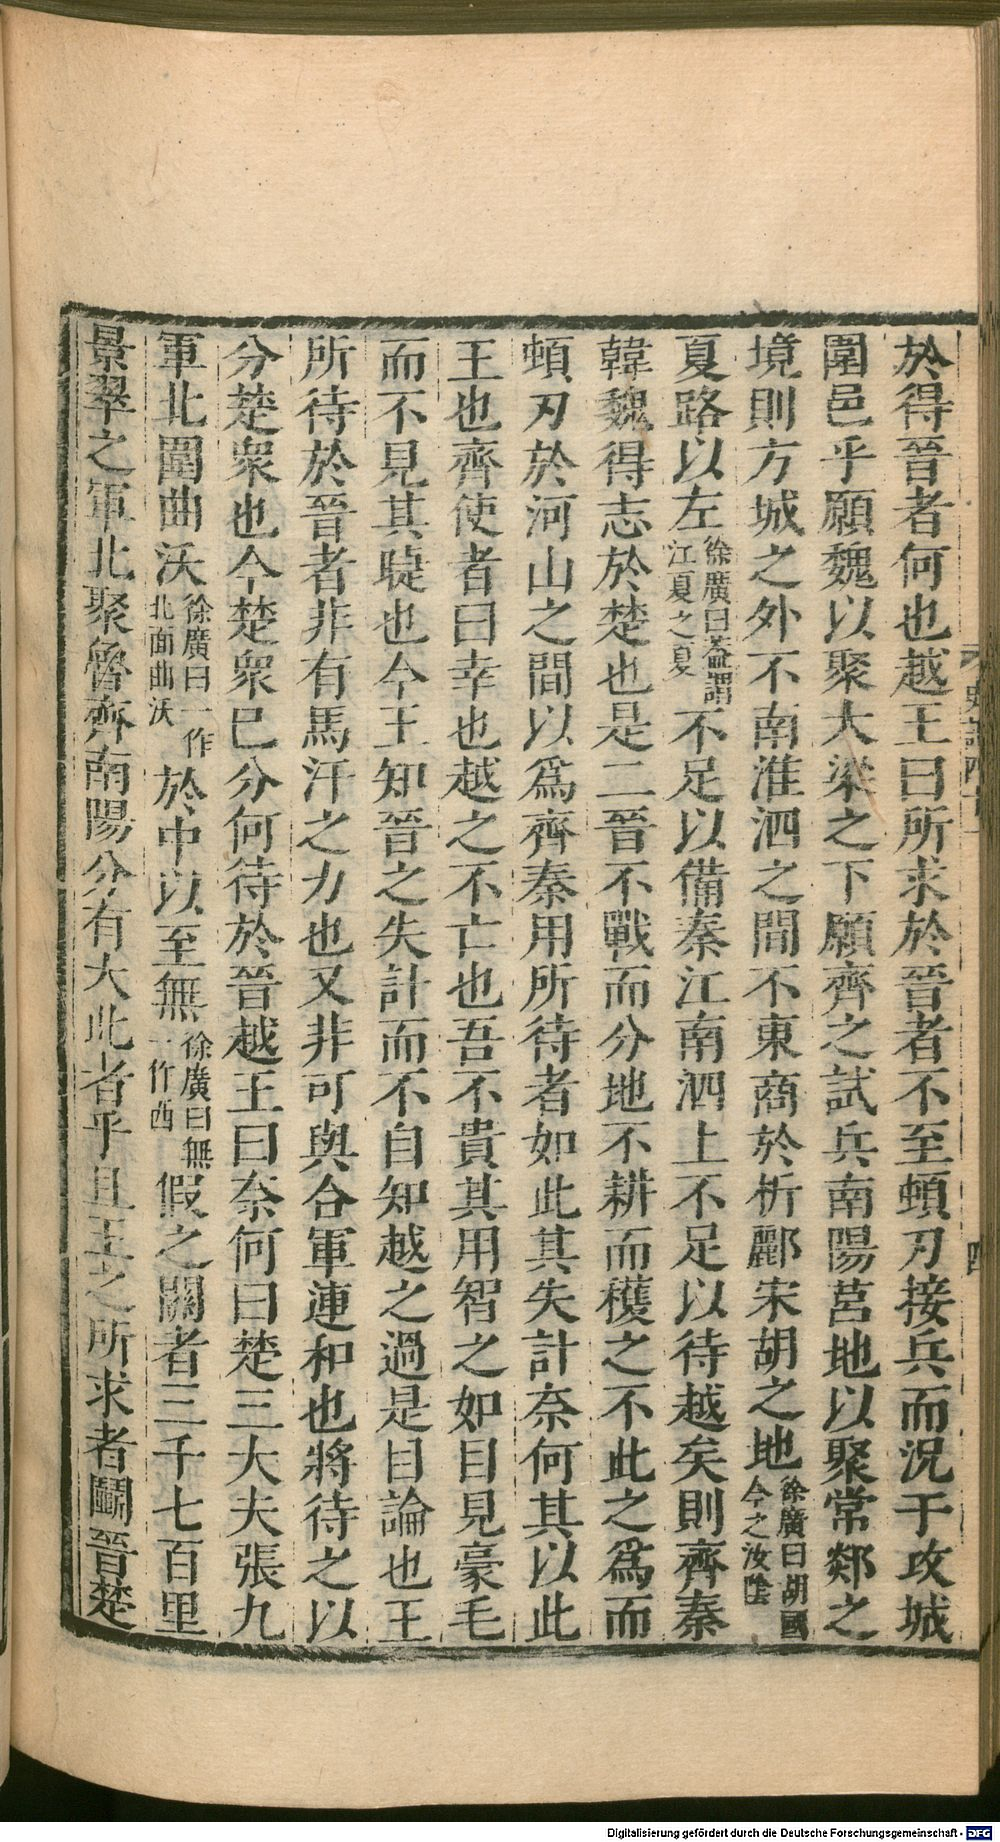 於得晉者何也越王曰所求於晉者不至頓刃接兵而況于攻城
圍邑乎願魏以聚大梁之下願齊之試兵南陽莒地以聚常郯之
境則方城之外不南淮泗之間不東商於析酈宋胡之地徐廣曰胡國今之汝陰
夏路以左徐廣曰蓋謂江夏之夏不足以備秦江南泗上不足以待越矣則齊秦
韓魏得志於楚也是二晉不戰而分地不耕而穫之不此之爲而
頓刃於河山之間以爲齊秦用所待者如此其失計奈何其以此
王也齊使者曰幸也越之不亡也吾不貴其用智之如目見豪毛
而不見其睫也今王知晉之失計而不自知越之過是目論也王
所待於晉者非有馬汗之力也又非可與合軍連和也將待之以
分楚衆也今楚衆已分何待於晉越王曰奈何曰楚三大夫張九
軍北圍曲沃徐廣曰一作北面曲沃於中以至無徐廣曰無一作西假之關者三千七百里
景翠之軍北聚魯齊南陽分有大此者乎且王之所求者鬭晉楚
Digitalisierung gefördert durch die Deutsche Forschungsgemeinschaft - DFG